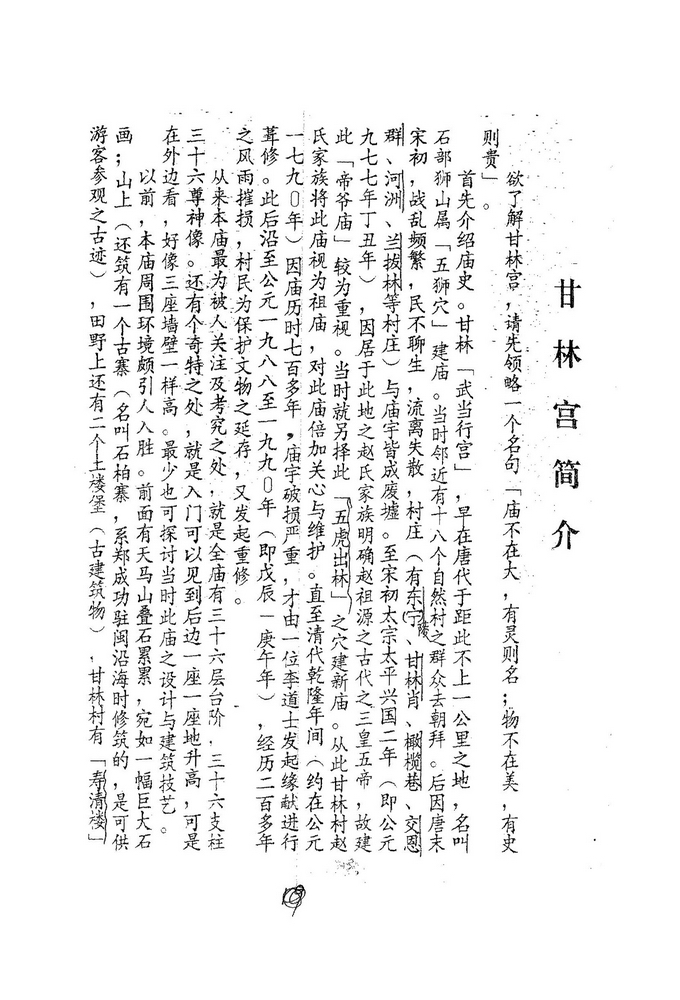 甘林宫简介
欲了解甘林宫，请先领略一个名句「庙不在大，有灵则名；物不在美，有史
则贵」。
首先介绍庙史。甘林「武当行宫」，早在唐代于距此不上一公里之地，名叫
石部狮山属「五狮穴」建庙。当时邻近有十八个自然村之群众去朝拜。后因唐末
宋初，战乱频繁，民不聊生，流离失散，村庄（有东宁、甘林肖、橄榄巷、交恩
群、河洲、兰拔林等村庄）与庙宇皆成废墟。至宋初太宗太平兴国二年（即公元
九七七年丁丑年），因居于此地之赵氏家族明确赵祖源之古代之三皇五帝，故建
此「帝爷庙」较为重视。当时就另择此「五虎出林」之穴建新庙。从此甘林村赵
氏家族将此庙视为祖庙，对此庙倍加关心与维护。直至清代乾隆年间（约在公元
一七九〇年）因庙历时七百多年，庙宇破损严重，才由一位李道士发起缘献进行
葺修。此后沿至公元一九八八至一九九〇年（即戊辰—庚午年），经历二百多年
之风雨摧损，村民为保护文物之延存，又发起重修。
从来本庙最为被人关注及考究之处，就是全庙有三十六层台阶，三十六支柱
三十六尊神像。还有个奇特之处，就是入门可以见到后边一座一座地升高，可是
在外边看，好像三座墙壁一样高。最少也可探讨当时此庙之设计与建筑技艺。
以前，本庙周围环境颇引人入胜。前面有天马山叠石累累，宛如一幅巨大石
画；山上（还筑有一个古寨（名叫石柏寨，系郑成功驻闽沿海时修筑的，是可供
游客参观之古迹），田野上还有二个土楼堡（古建筑物），甘林村有「寿清楼」